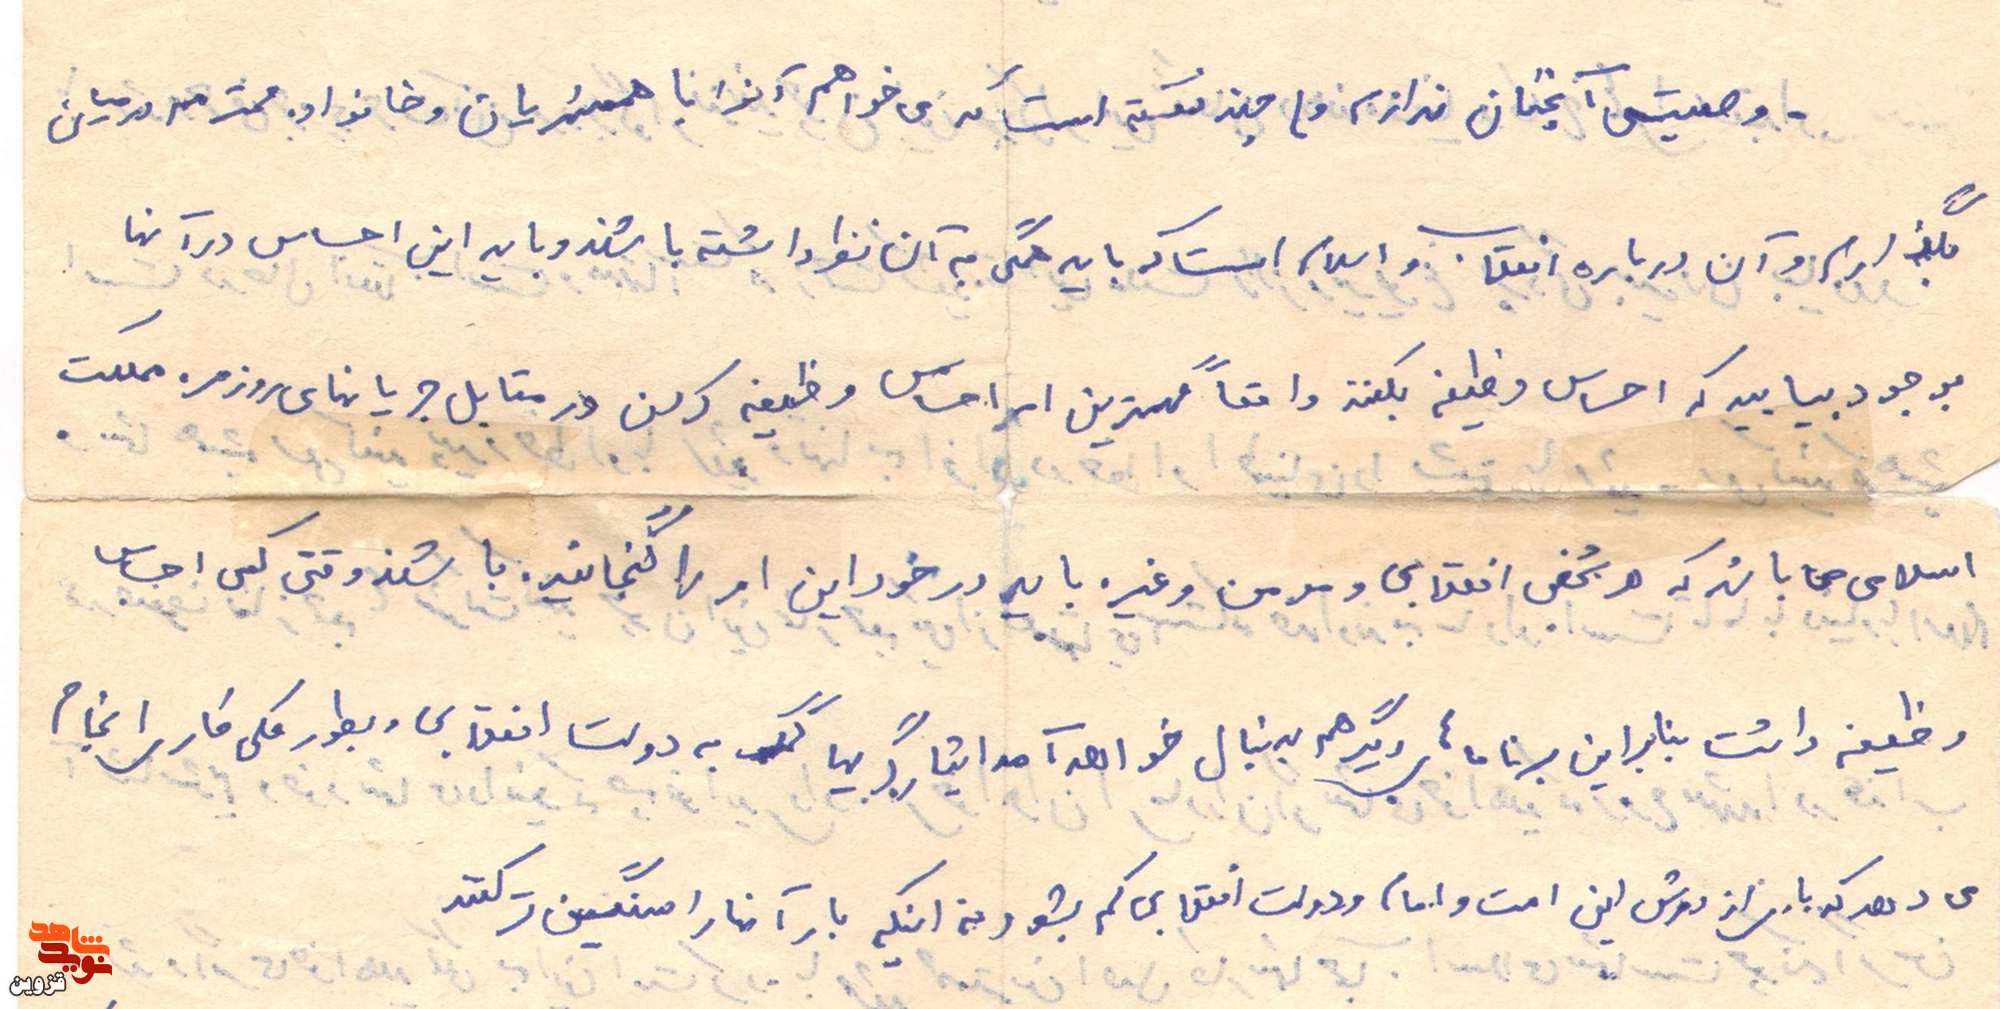 - وصیتی آنچنان ندارم ولی چند نکته است که می خواهم آنرا با همشهریان و خانواده محترمم درمیان
بگذارم و آن درباره انقلاب و اسلام است که باید همگی به آن نظر داشته باشند و باید این احساس در آنها
بوجود بیاید که احساس وظیفه بکنند واقعاً مهمترین امر احساس وظیفه کردن در مقابل جریانهای روزمره مملکت
اسلامی می باشد که هر شخص انقلابی و مومن و غیره باید در خود این امر را گنجانیده باشند وقتی کسی احساس
وظیفه داشت بنابراین برنامه های دیگر هم بدنبال خواهد آمد ایثارگریها کمک به دولت انقلابی و بطور کلی کاری انجام
می دهد که باری از دوش این امت و امام و دولت انقلابی کم بشود نه اینکه بار آنها را سنگین تر کنند
نوید شاهد
قزوین